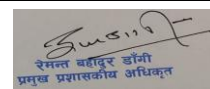 रेमन्त बहादुर डाँगी
प्रमुख प्रशासकीय अधिकृत